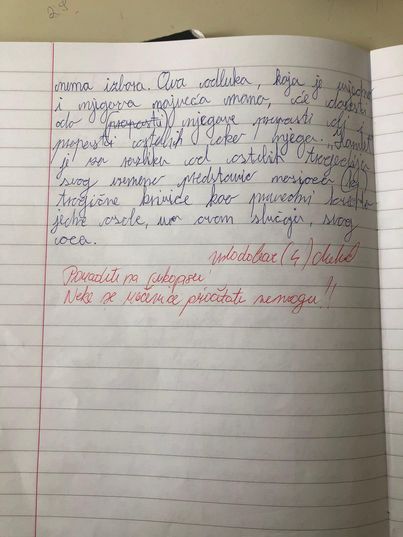 29.
nema izbora. Ova odluka, koja je ujedno
i njegova najveća mana, će dovesti
do propasti njegove propasti ali i
propasti ostalih oko njega. "Hamlet"
je za razliku od ostalih tragedija
svog vremena predstavio nosioca
tragične krivice kao
jedne osobe, u ovom slučaju, svog
oca.
vrlodobar (4)
Poraditi na rukopisu!
Neke se rečenice pročitati nemogu!!